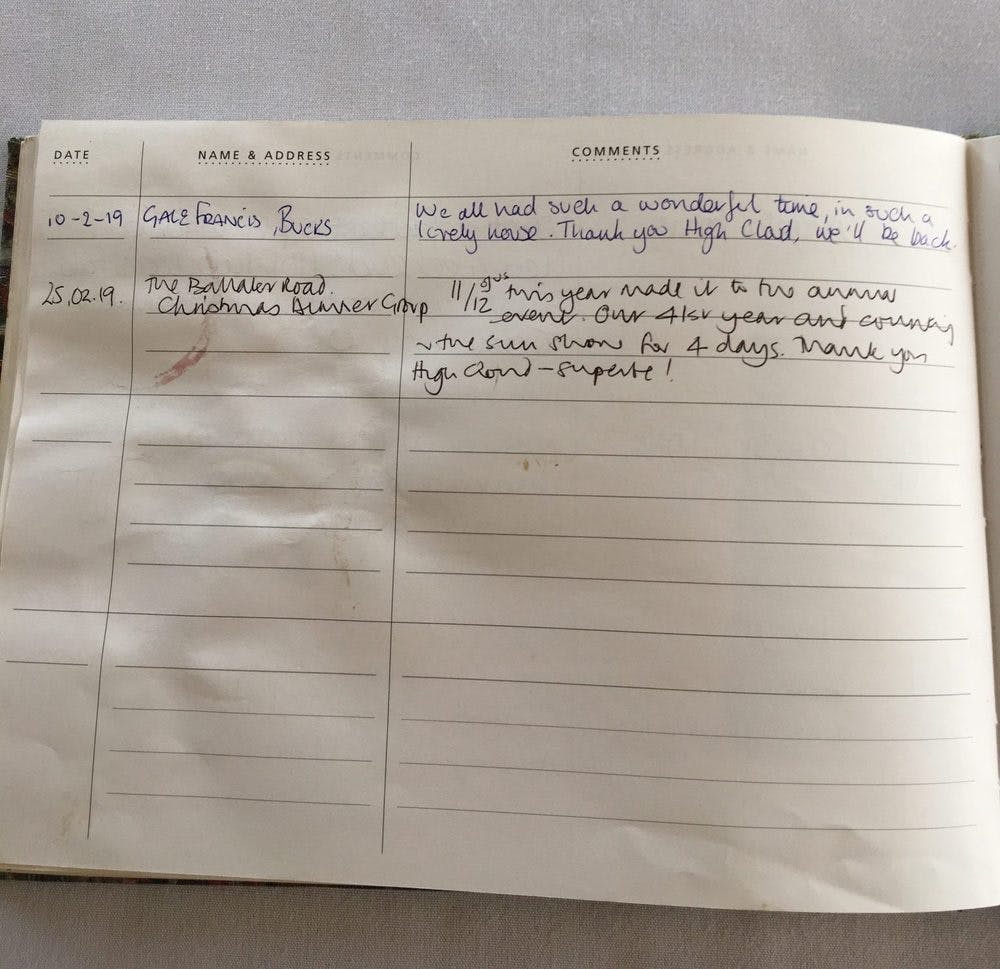 DATE NAME & ADDRESS COMMENTS
10-2-19 GALE FRANCIS, BUCKS
We all had such a wonderful time, in such a
lovely house. Thank you High Clad, we'll be back.
25.02.19. The Road.
Christmas Dinner Group
11/12 this year made it to the annual
event. Our 41st year and counting
the sun shone for 4 days. Thank you
High - superbe!